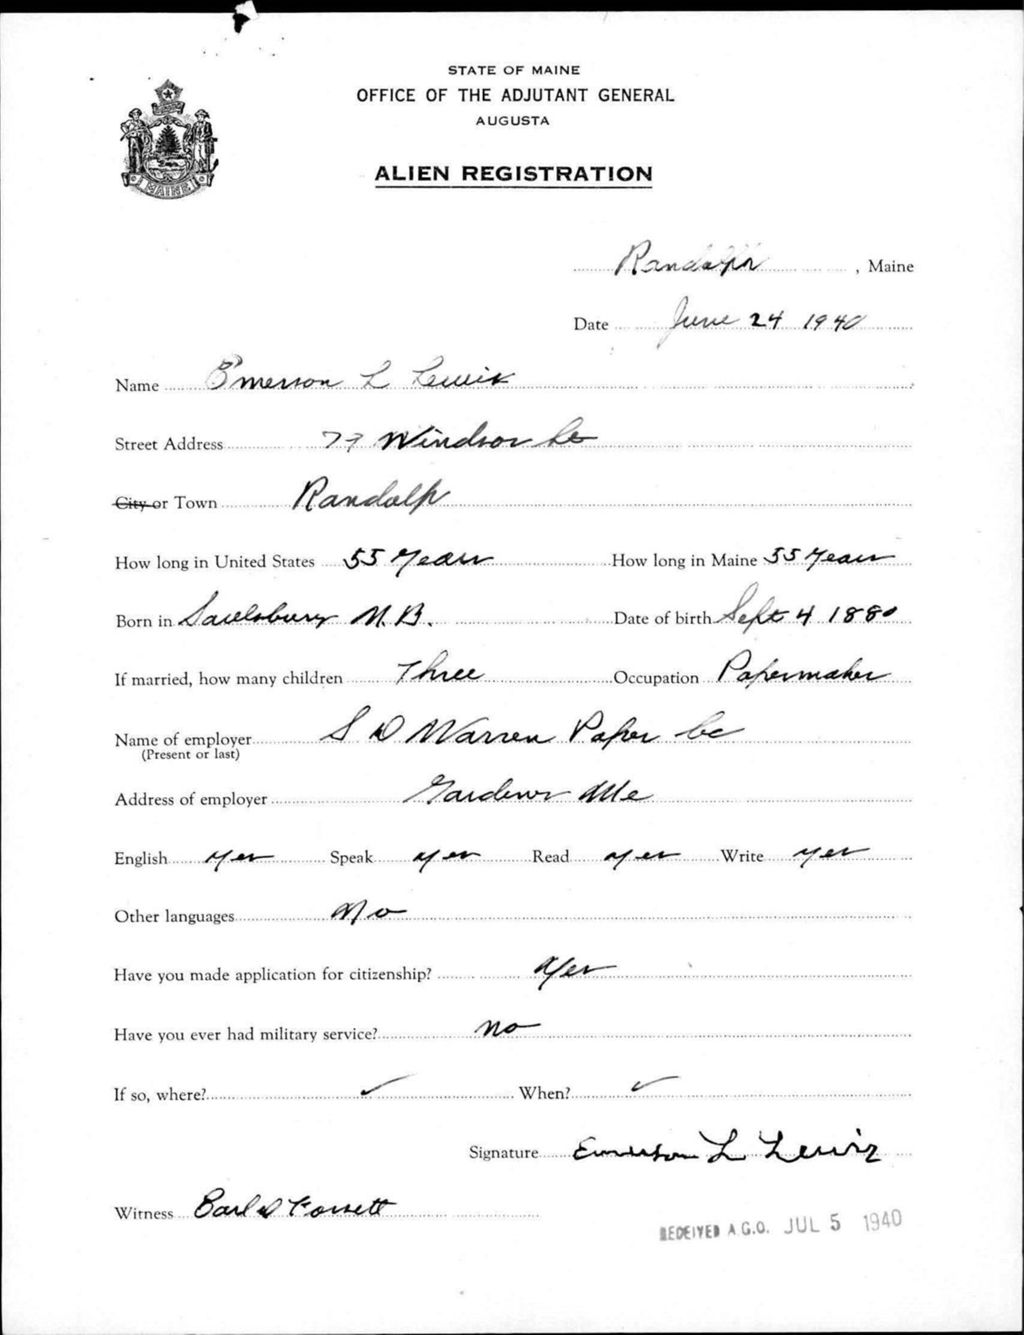 STATE OF MAINE
OFFICE OF THE ADJUTANT GENERAL
AUGUSTA
ALIEN REGISTRATION
MAINE
Randolph, Maine
Date June 24 1940
Name Emerson L Lewis
Street Address 77 Windsor
City or Town Randolph
How long in United States 55 Years How long in Maine 55 Years
Born in N.B. Date of birth Sept 4 1880
If married, how many children Three Occupation Papermaker
Name of employer S D Warren Paper Co
(Present or last)
Address of employer Me
English Yes Speak yes Read yes Write yes
Other languages No
Have you made application for citizenship? Yes
Have you ever had military service? no
If so, where? ✓ When? ✓
Signature Emerson L Lewis
Witness
RECEIVED A.G.O. JUL 5 1940